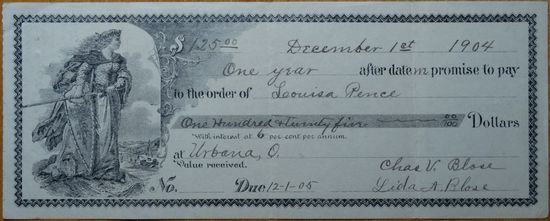 $125.00 December 1st 1904
One year after date we promise to pay
to the order of Louisa Pence
One Hundred & twenty five 00/100 Dollars
With interest at 6 per cent per annum.
at Urbana, O.
Value received. Chas V. Blose
No. Due 12-1-05 Lida A. Blose